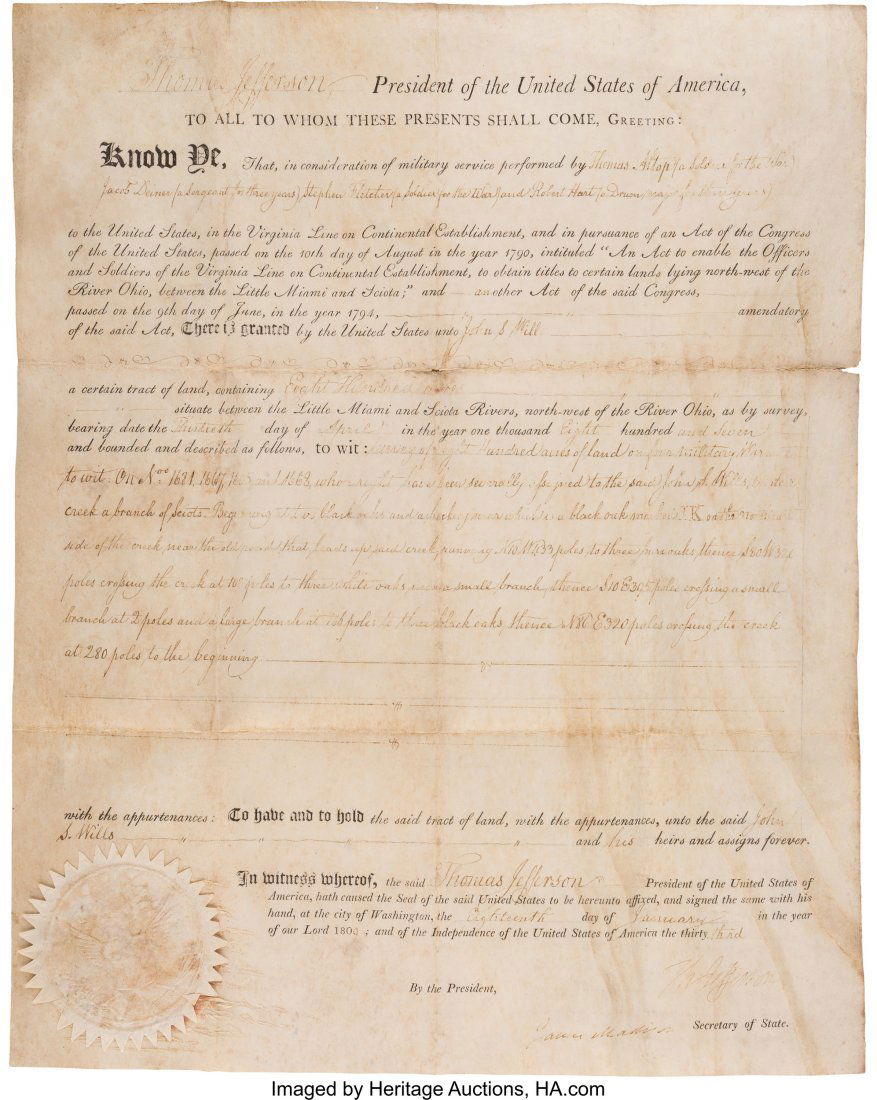 Thomas Jefferson, President of the United States of America,
TO ALL TO WHOM THESE PRESENTS SHALL COME, GREETING:
Know Ye, That, in consideration of military service performed by Thomas Alsop (a Soldier for the War)
Jacob Deiner (a Sergeant for three years) Stephen Fletcher (a Soldier for the War) and Robert Hart (a three years)
to the United States, in the Virginia Line on Continental Establishment, and in pursuance of an Act of the Congress
of the United States, passed on the 10th day of August in the year 1790, intituled "An Act to enable the Officers
and Soldiers of the Virginia Line on Continental Establishment, to obtain titles to certain lands lying north-west of the
River Ohio, between the Little Miami and Sciota;" and another Act of the said Congress,
passed on the 9th day of June, in the year 1794, amendatory
of the said Act, There is granted by the United States unto John S Will
a certain tract of land, containing Eight Hundred acres
situate between the Little Miami and Sciota Rivers, north-west of the River Ohio, as by survey,
bearing date the thirtieth day of April in the year one thousand Eight hundred and seven
and bounded and described as follows, to wit: Survey of eight Hundred acres of land on four military
to wit. On Nos 1681, 1667, and 1668, the said John
creek a branch of Sciota. Beginning at two black oaks and a hickory a black oak marked K on the
side of the creek, near the old road that leads up said creek, running poles to three oaks, thence
poles crossing the creek at poles to three white oaks a small branch, thence S10E poles crossing a small
branch at 2 poles and a large branch at 156 poles to three black oaks thence N80E320 poles crossing the creek
at 280 poles to the beginning
with the appurtenances: To have and to hold the said tract of land, with the appurtenances, unto the said John
S. Wills and his heirs and assigns forever.
In witness whereof, the said Thomas Jefferson President of the United States of
America, hath caused the Seal of the said United States to be hereunto affixed, and signed the same with his
hand, at the city of Washington, the Eighteenth day of January in the year
of our Lord 1809; and of the Independence of the United States of America the thirty third
Th: Jefferson
By the President,
James Madison Secretary of State.
Imaged by Heritage Auctions, HA.com